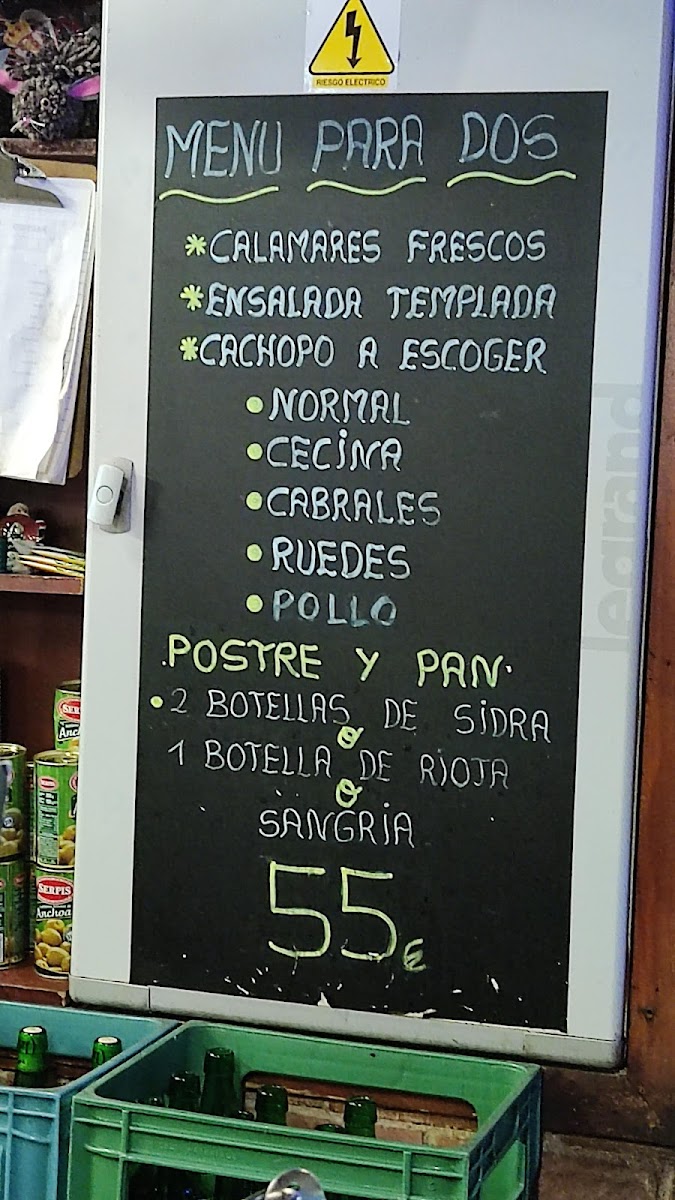 RIESGO ELECTRICO
MENU PARA DOS
*CALAMARES FRESCOS
*ENSALADA TEMPLADA
*CACHOPO A ESCOGER
•NORMAL
•CECINA
•CABRALES
•RUEDES
•POLLO
.POSTRE Y PAN.
•2 BOTELLAS DE SIDRA
O
1 BOTELLA DE RIOJA
O
SANGRIA
55€
legrand
SERPIS
Anchoa